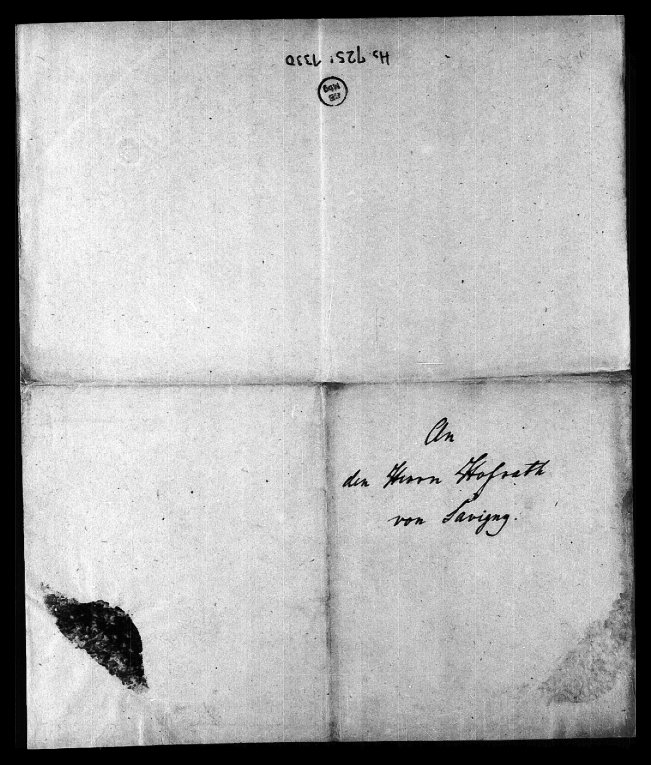 Hs 725: 1330
UB
Mbg
An
den Herrn Hofrath
von Savigny.